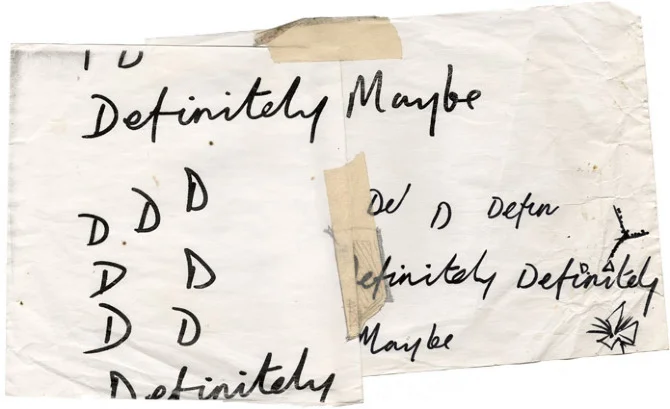 D
Definitely Maybe
D D D
De D Defin
D D
efinitely Definitely
D D
Maybe
Definitely